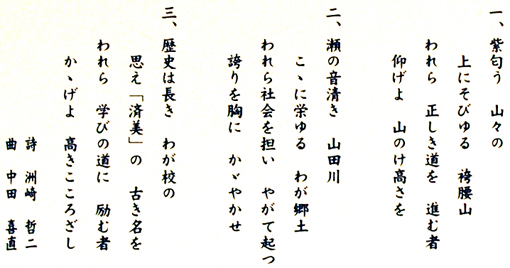 一、紫匂う 山々の
上にそびゆる 袴腰山
われら 正しき道を 進む者
仰げよ 山のけ高さを
二、瀬の音清き 山田川
こゝに栄ゆる わが郷土
われら社会を担い やがて起つ
誇りを胸に かゞやかせ
三、歴史は長き わが校の
思え「済美」の 古き名を
われら 学びの道に 励む者
かゝげよ 高きこころざし
詩 洲崎 哲二
曲 中田 喜直